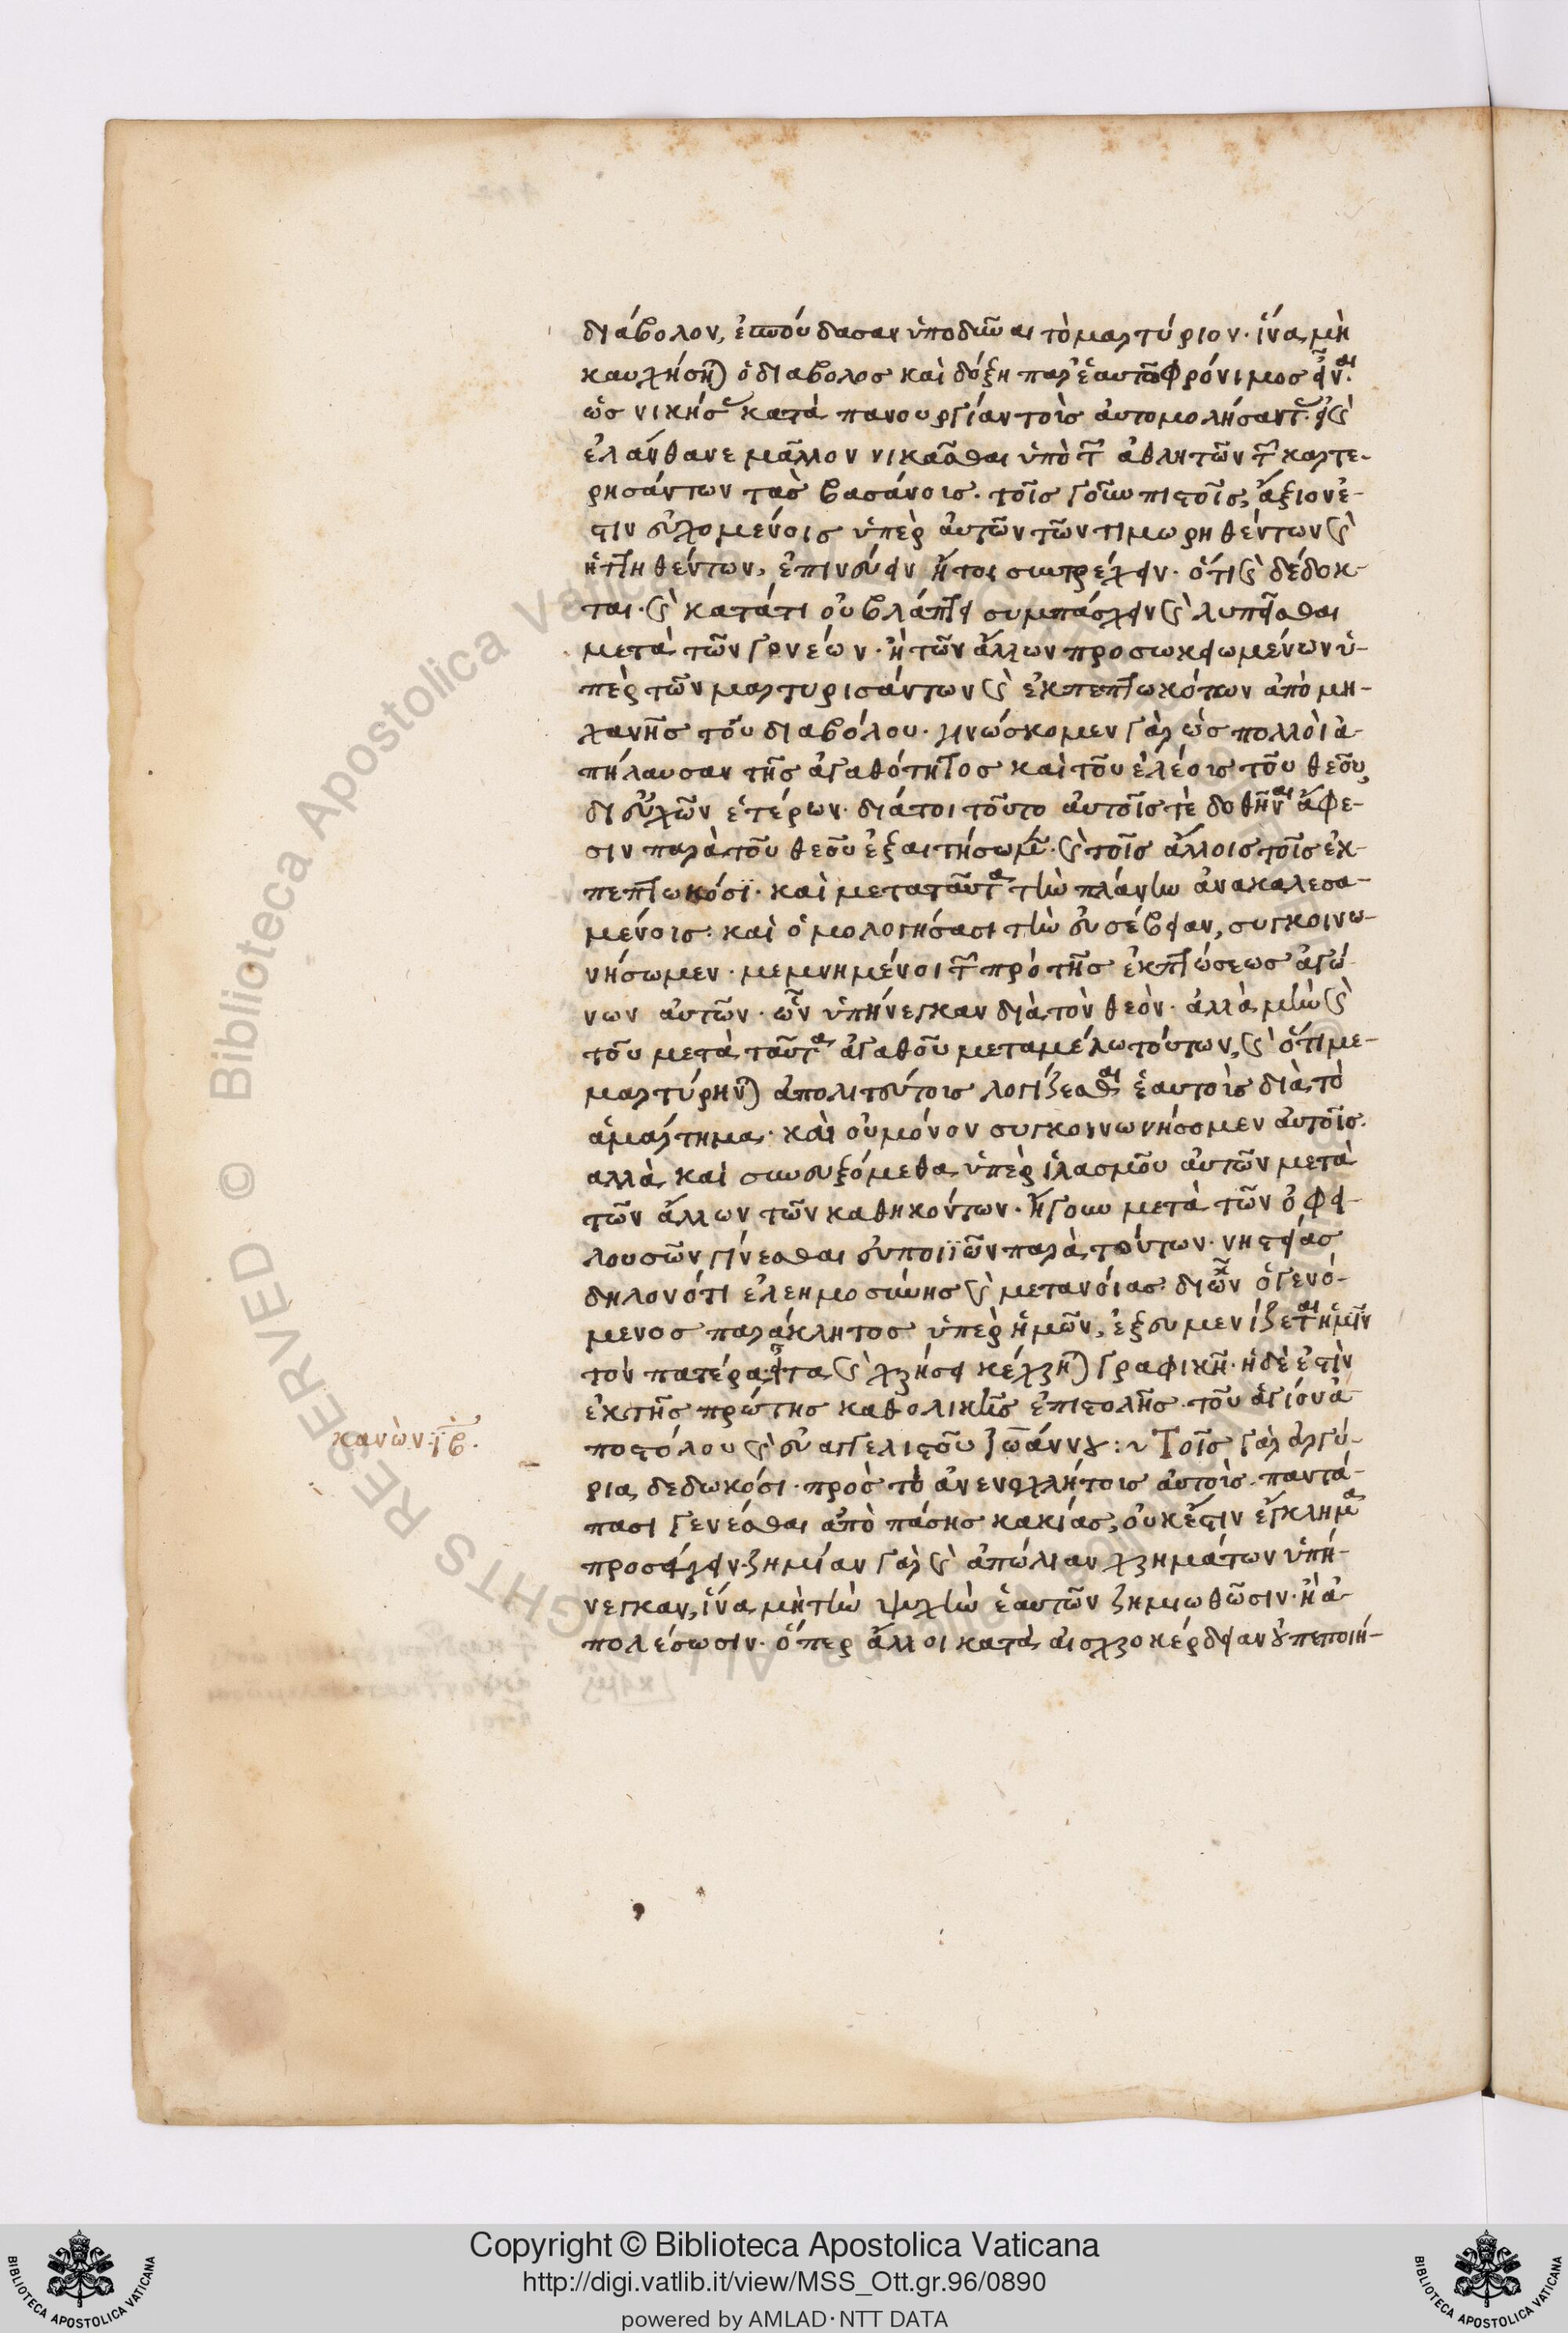 διάβολον, ἐσπούδασαν ὑποδῦναι τὸ μαρτύριον· ἵνα μὴ
καυχήσηται ὁ διάβολος καὶ δόξη παρ' ἑαυτῶ φρόνιμος εἶναι·
ὡς νικήσας κατὰ πανουργίαν τοὺς αὐτομολήσαντας· καὶ
ἐλάνθανε μᾶλλον νικᾶσθαι ὑπὸ τῶν ἀθλητῶν τῶν καρτε-
ρησάντων τὰς βασάνοις. τοῖς γοῦν πιστοῖς, ἄξιον ἐ-
στιν εὐχομένοις ὑπὲρ αὐτῶν τῶν τιμωρηθέντων καὶ
ἡττηθέντων, ἐπινεύειν ἤτοι συντρέχειν· ὅτι καὶ δέδοκ-
ται· καὶ κατάτι οὐ βλάπτει συμπάσχειν καὶ λυπεῖσθαι
μετὰ τῶν γονέων· ἢ τῶν ἄλλων προσωκειωμένων ὑ-
πὲρ τῶν μαρτυρισάντων καὶ ἐκπεπτωκότων ἀπὸ μη-
χανῆς τοῦ διαβόλου· γινώσκομεν γὰρ ὡς πολλοὶ ἀ-
πήλαυσαν τῆς ἀγαθότητος καὶ τοῦ ἐλέους τοῦ θεοῦ,
δι εὐχῶν ἑτέρων· διάτοι τοῦτο αὐτοῖς τὲ δοθῆναι ἄφε-
σιν παρὰ τοῦ θεοῦ ἐξαιτήσωμεν· καὶ τοῖς ἄλλοις τοῖς ἐκ-
πεπτωκόσϊ· καὶ μεταταῦτα τὴν πλάνην ἀνακαλεσα-
μένοις· καὶ ὁμολογήσασι τὴν εὐσέβειαν, συγκοινω-
νήσωμεν· μεμνημένοι τῶν πρὸ τῆς ἐκπτώσεως ἀγώ-
νων αὐτῶν· ὧν ὑπήνεγκαν διὰ τὸν θεὸν· ἀλλὰ μὴν καὶ
τοῦ μετὰ ταῦτα ἀγαθοῦ μεταμέλου τούτων, καὶ ὅτι με-
μαρτύρηνται ἀπολιτεύτους λογίζεσθαι ἑαυτοὺς διὰ τὸ
ἁμάρτημα· καὶ οὐμόνον συγκοινωνήσομεν αὐτοῖς·
αλλὰ καὶ συνευξόμεθα ὑπὲρ ἱλασμοῦ αὐτῶν μετὰ
τῶν ἄλλων τῶν καθηκόντων· ἤγουν μετὰ τῶν ὀφει-
λουσῶν γίνεσθαι εὐποιϊῶν παρὰ τούτων· νηστείας
δηλονότι ἐλεημοσύνης καὶ μετανοίας· δι ὧν ὁ γενό-
μενος παράκλητος ὑπὲρ ἡμῶν, ἐξευμενίζεται ἡμῖν
τὸν πατέρα· εἶτα καὶ χρήσει κέχρηται γραφικῆ· ἡ δὲ ἐστὶν
ἐκ τῆς πρώτης καθολικῆς ἐπιστολῆς τοῦ ἁγίου ἀ-
ποστόλου καὶ εὐαγγελιστοῦ Ἰωάννου:~ Τοῖς γὰρ ἀργύ-
ρια δεδωκόσι· πρὸς τὸ ἀνενοχλήτους αὐτοὺς παντά-
πασι γενέσθαι ἀπὸ πάσης κακίας, οὐκ ἔστιν ἔγκλημα
προσάγειν· ζημίαν γὰρ καὶ ἀπώλιαν χρημάτων ὑπή-
νεγκαν, ἵνα μὴ τὴν ψυχὴν ἑαυτῶν ζημιωθῶσιν· ἢ ἀ-
πολέσωσιν· ὅπερ ἄλλοι κατὰ αἰσχροκέρδειαν οὐ πεποιή-
κανὼν· ιβ·
Copyright © Biblioteca Apostolica Vaticana
http://digi.vatlib.it/view/MSS_Ott.gr.96/0890
powered by AMLAD · NTT DATA
BIBLIOTECA APOSTOLICA VATICANA
BIBLIOTECA APOSTOLICA VATICANA